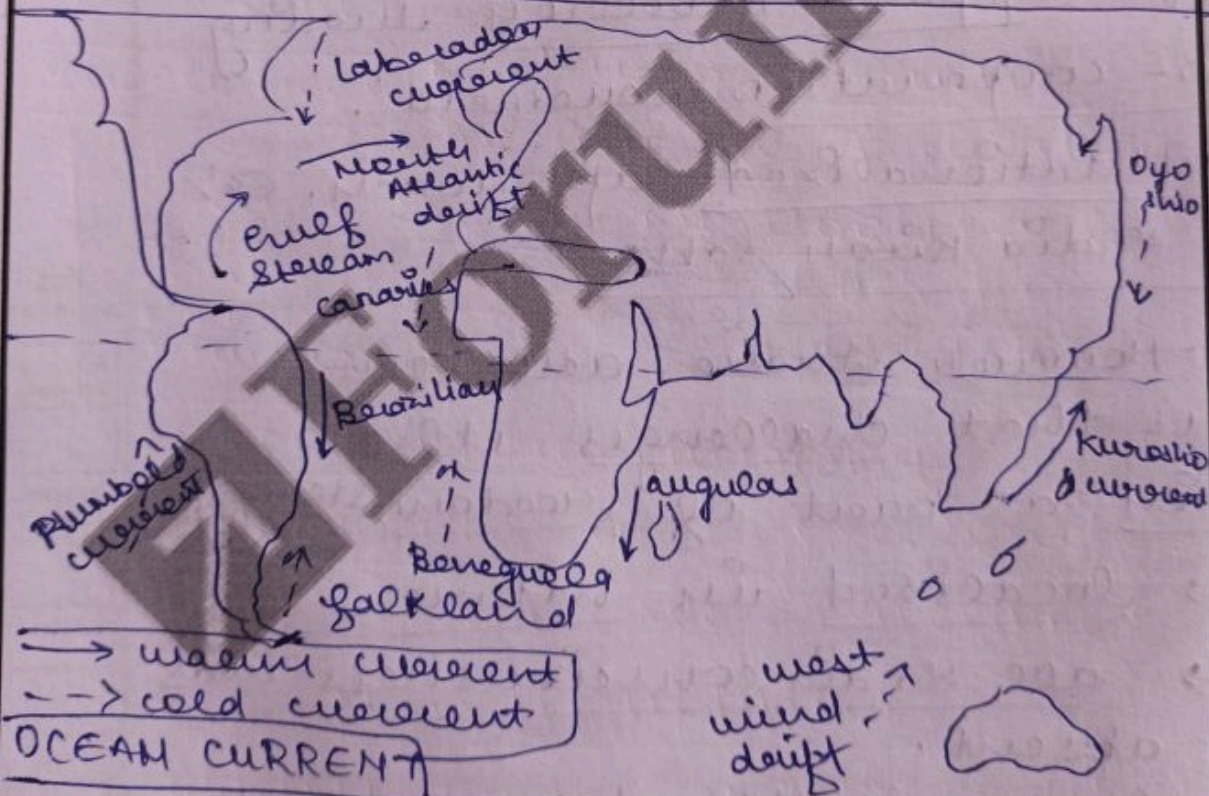 Laberador
current
North
Atlantic
drift
Gulf
Stream
canaries
Oyo
shio
Brazilian
Humbold
current
augulas
Kuroshio
current
Beneguela
falkland
→ warm current
--> cold current
west
wind
drift
OCEAN CURRENT
Forum